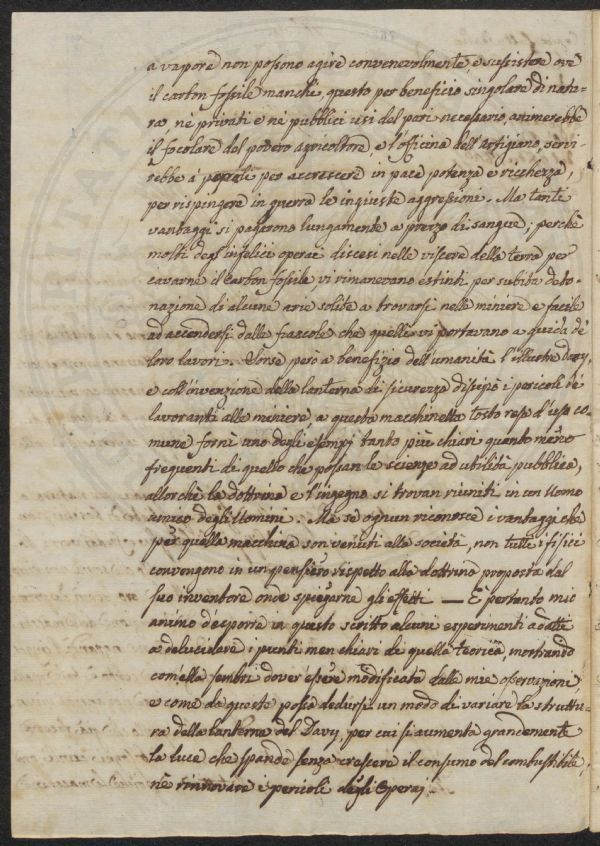 a vapore non possono agire convenevolmente, e sussistere ove
il carbon fossile manchi, questo per beneficio singolare di natu-
ra né privati e né pubblici usi del pari necessario, animerebbe
il focolare del povero agricoltore, e l'officina dell'artigiano, servi-
rebbe a popoli per accrescere in pace potenza e ricchezza,
per rispingere in guerra le ingiuste aggressioni. Ma tanti
vantaggi si pagarono lungamente a prezzo di sangue; perchè
molti degl'infelici operai discesi nelle viscere della terra per
cavarne il carbon fossile vi rimanevano estinti per subita deto-
nazione di alcune arie solite a trovarsi nelle miniere e facile
ad accendersi dalle fiaccole che quelli vi portavano a guida de'
loro lavori. Sorse però a benefizio dell'umanità l'illustre Davy,
e coll'invenzione della lanterna di sicurezza dissipò i pericoli de'
lavoranti alle miniere, a questa macchinetta tosto resa d'uso co-
mune fornì uno degli esempj tanto più chiari quanto meno
frequenti di quello che possan le scienze ad utilità pubblica,
allorchè la dottrina e l'ingegno si trovan riuniti in un Uomo
amico degli Uomini. Ma se ognun riconosce i vantaggi che
per quella macchina son venuti alla società, non tutti i fisici
convengono in un pensiero rispetto alla dottrina proposta dal
suo inventore onde spiegarne gli effetti — È pertanto mio
animo d'esporre in questo scritto alcuni esperimenti adatti
a delucidare i punti men chiari di quella teorica, mostrando
com'ella sembri dover essere modificata dalle mie osservazioni,
e come da queste possa dedursi un modo di variare la struttu-
ra della Lanterna del Davy, per cui si aumenta grandemente
la luce che spande senza crescere il consumo del combustibile,
nè rinnovare i pericoli degli Operaj.